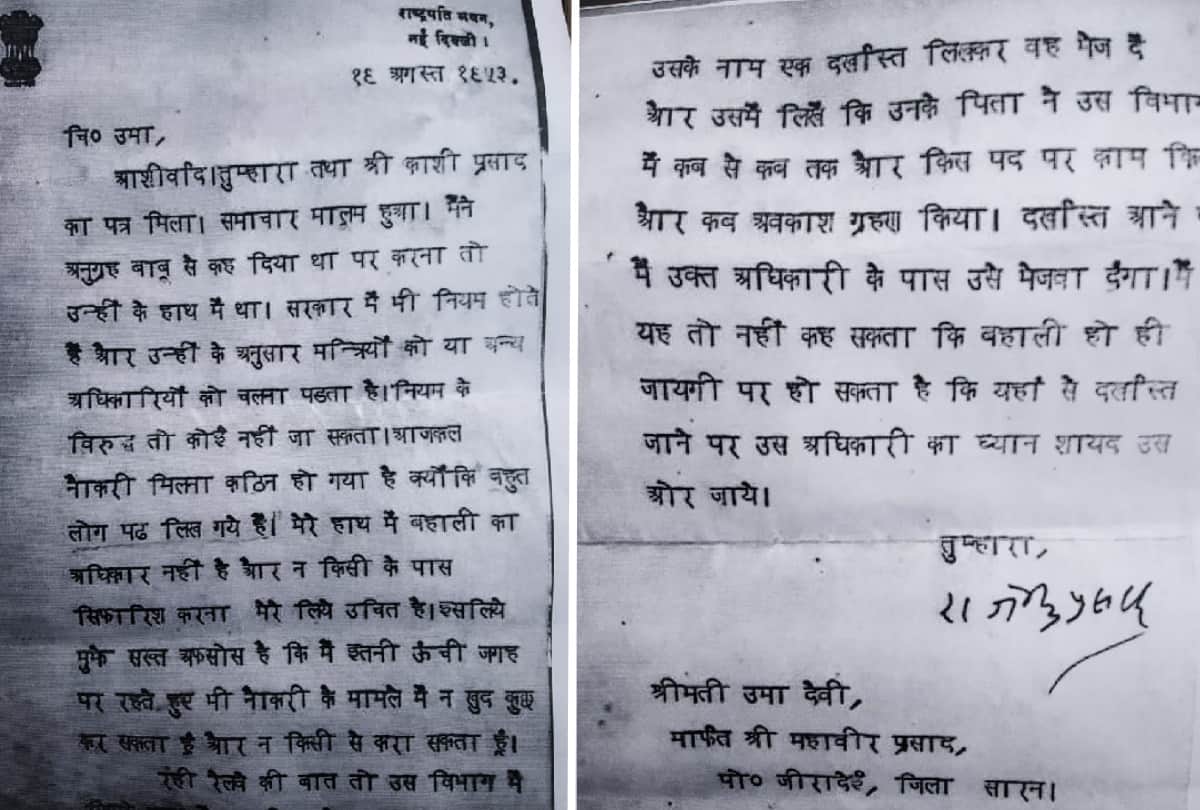 राष्ट्रपति भवन,
नई दिल्ली।
१६ अगस्त १९५३.
चि० उमा,
आशीर्वाद।तुम्हारा तथा श्री काशी प्रसाद
का पत्र मिला। समाचार मालूम हुआ। मैंने
अनुग्रह बाबू से कह दिया था पर करना तो
उन्हीं के हाथ में था। सरकार में भी नियम होते
हैं और उन्हीं के अनुसार मन्त्रियों को या अन्य
अधिकारियों को चलना पडता है।नियम के
विरुद्ध तो कोई नहीं जा सकता।आजकल
नौकरी मिलना कठिन हो गया है क्योंकि बहुत
लोग पढ लिख गये हैं। मेरे हाथ में बहाली का
अधिकार नहीं है और न किसी के पास
सिफारिश करना मेरे लिये उचित है।इसलिये
मुझे सख्त अफसोस है कि मैं इतनी ऊंची जगह
पर रहते हुए भी नौकरी के मामले में न खुद कुछ
कर सकता हूं और न किसी से करा सकता हूं।
रही रेलवे की बात तो उस विभाग में
उसके नाम एक दर्खास्त लिखकर वह भेज दें
और उसमें लिखें कि उनके पिता ने उस
में कब से कब तक और किस पद पर काम
और कब अवकाश ग्रहण किया। दर्खास्त आने
मैं उक्त अधिकारी के पास उसे भेजवा दूंगा।मैं
यह तो नहीं कह सकता कि बहाली हो ही
जायगी पर हो सकता है कि यहां से दर्खास्त
जाने पर उस अधिकारी का ध्यान शायद उस
ओर जाये।
तुम्हारा,
राजेन्द्र प्रसाद
श्रीमती उमा देवी,
मार्फत श्री महावीर प्रसाद,
पो० जीरादेई, जिला सारन।